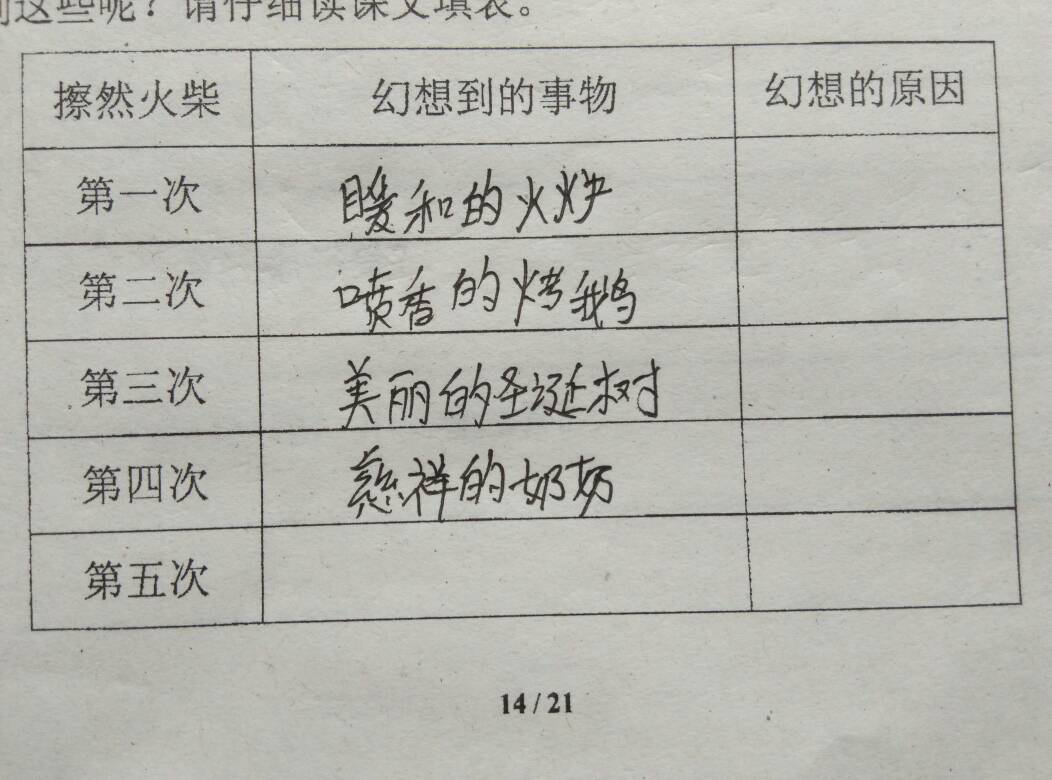 这些呢？请仔细读课文填表。
擦然火柴 幻想到的事物 幻想的原因
第一次 暖和的火炉
第二次 喷香的烤鹅
第三次 美丽的圣诞树
第四次 慈祥的奶奶
第五次
14 / 21